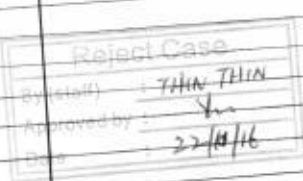 Reject Case
By (staff) : THIN THIN
Approved by :
Date : 22/11/16